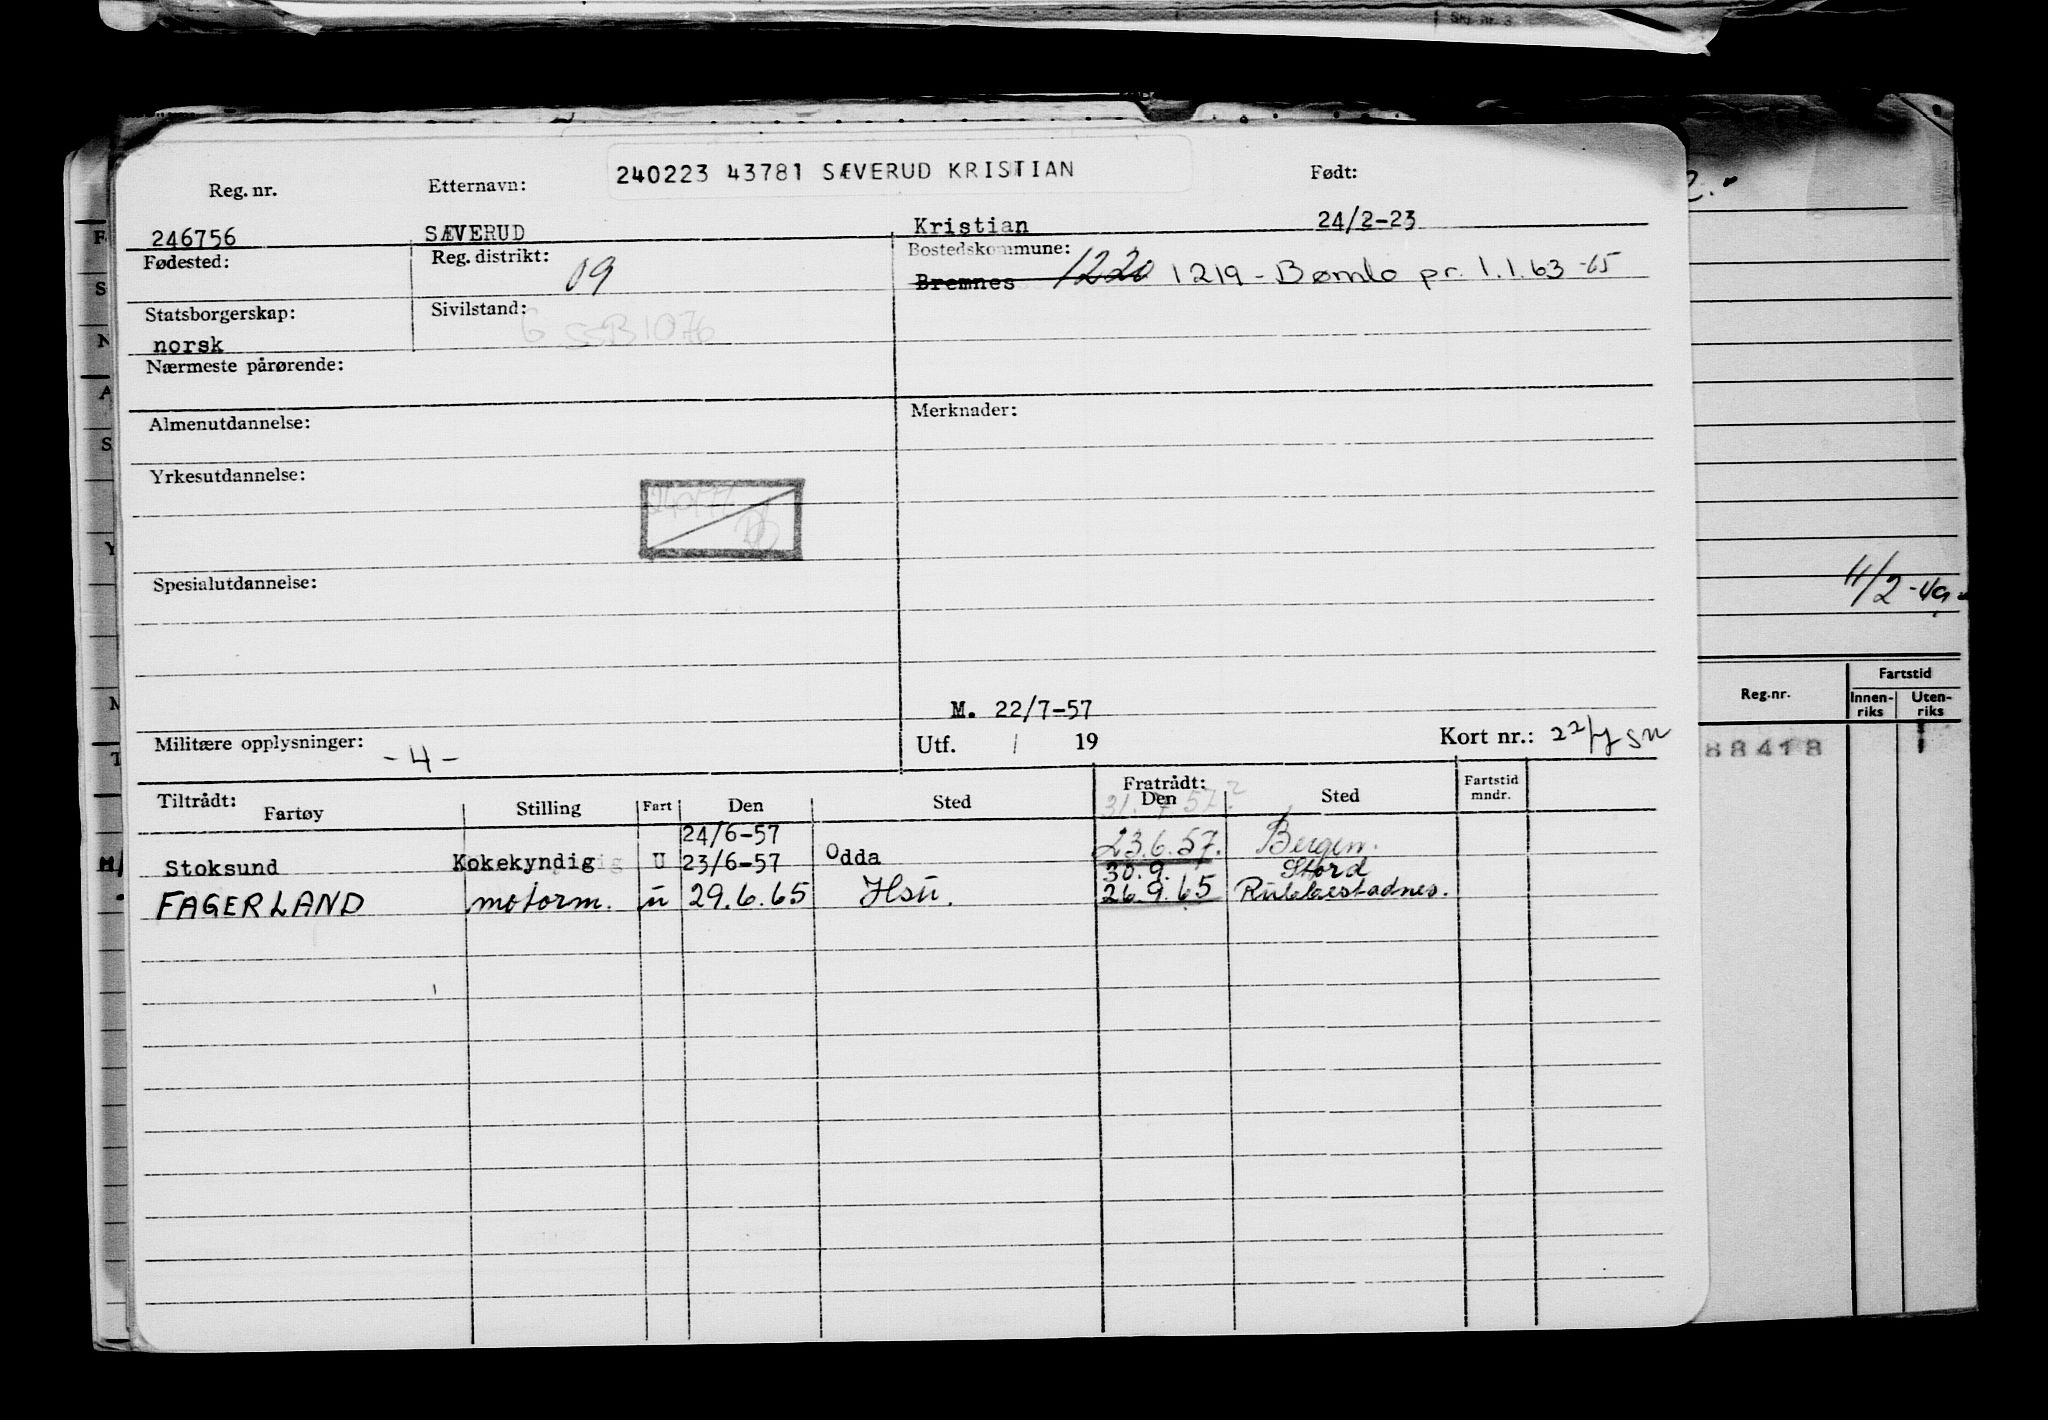 240223 43781 SÆVERUD KRISTIAN
Reg. nr. Etternavn: Født:
246756 SÆVERUD Kristian 24/2-23
Fødested: Reg. distrikt: 09 Bostedskommune:
Bremnes 1220 1219 - Bømlo pr. 1.1.63 -65
Statsborgerskap: Sivilstand:
norsk
Nærmeste pårørende:
Almenutdannelse: Merknader:
Yrkesutdannelse:
Spesialutdannelse:
M. 22/7-57
Militære opplysninger: -4- Utf. / 19 Kort nr.: 22/7
Tiltrådt: Fratrådt: Fartstid mndr.
Fartøy Stilling Fart Den Sted Den Sted
31. 57?
24/6-57
Stoksund Kokekyndig U 23/6-57 Odda 23.6.57. Bergen.
30.9. Stord
FAGERLAND motorm. u 29.6.65 Hsu. 26.9.65 Rubbestadnes.
11/2-49
Fartstid
Reg.nr. Innen-riks Uten-riks
88418